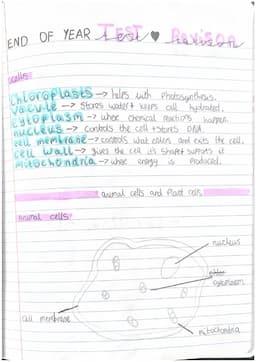 END OF YEAR TEST ♥ Revision
Cells
Chloroplasts → helps with Photosynthesis.
Vacuole → Stores water + keeps cell hydrated.
Cytoplasm → where chemical reactions happen.
nucleus → controls the cell + stores DNA.
cell membrane → controls what enters and exits the cell.
cell wall → gives the cell it's shape + supports it
mitochondria → where energy is produced.
animal cells and Plant cells
Animal cells:
nucleus
cytoplasm
cell membrane
mitochondria